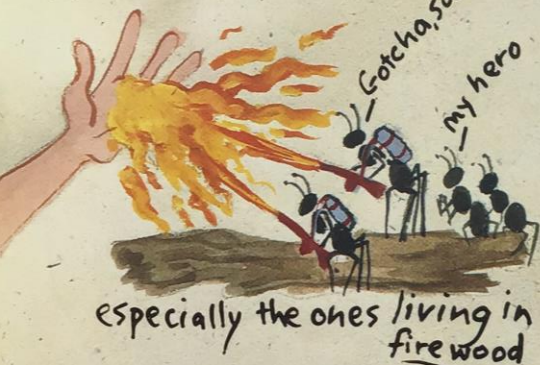 Gotcha,
my hero
especially the ones living in
firewood